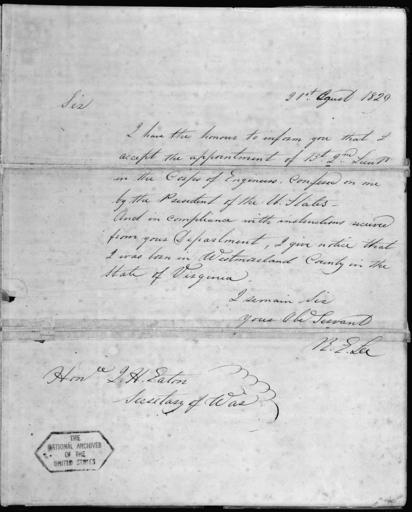 21st August 1829
Sir
I have the honour to inform you that I
accept the appointment of Bt 2nd Lieut
in the Corps of Engineers Confered on me
by the President of the U. States –
And in compliance with instructions received
from your Department, I give notice that
I was born in Westmoreland County in the
State of Virginia
I remain Sir
Your Obt Servant
R. E. Lee
Honble J. H. Eaton
Secretary of War
THE
NATIONAL ARCHIVES
OF THE
UNITED STATES